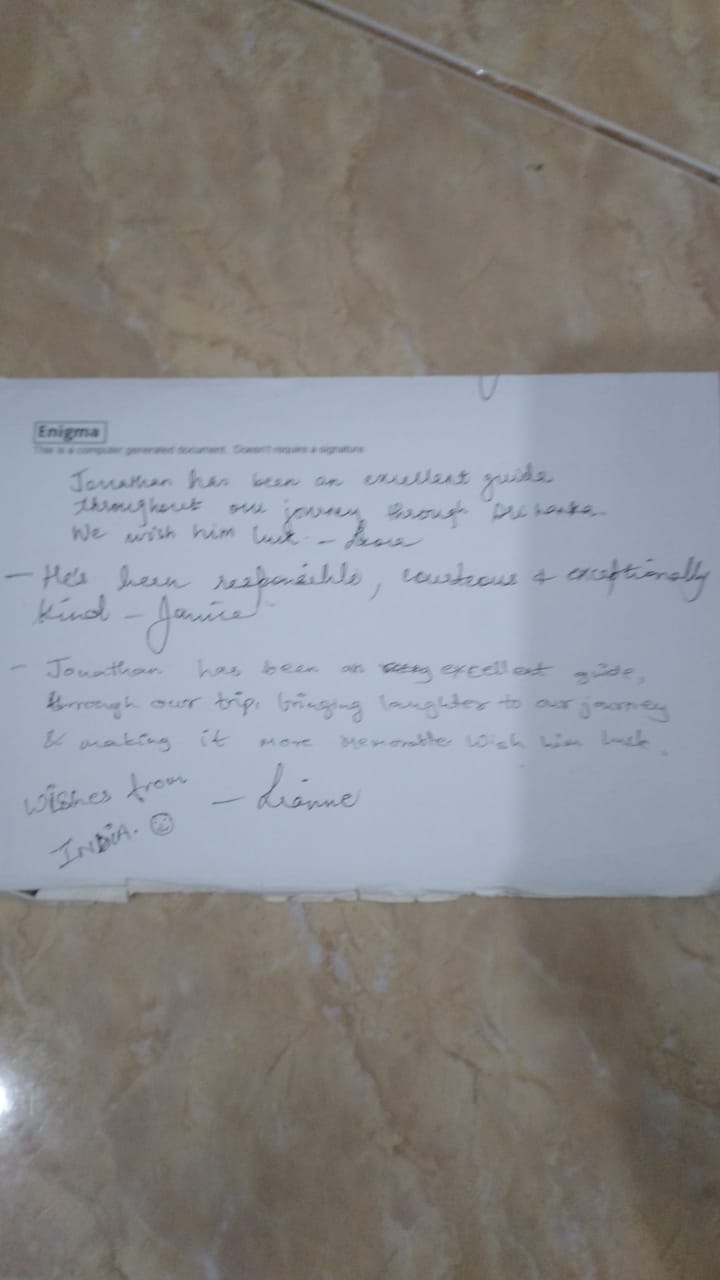 Enigma
This is a computer generated document. Doesn't require a signature
Jonathan has been an excellent guide
throughout our journey through Sri Lanka
We wish him luck -
- He's been responsible, courteous & exceptionally
kind - Janice
- Jonathan has been an excellent guide,
through our trip, bringing laughter to our journey
& making it more memorable Wish him luck.
Wishes from
- Lianne
INDIA. ☺